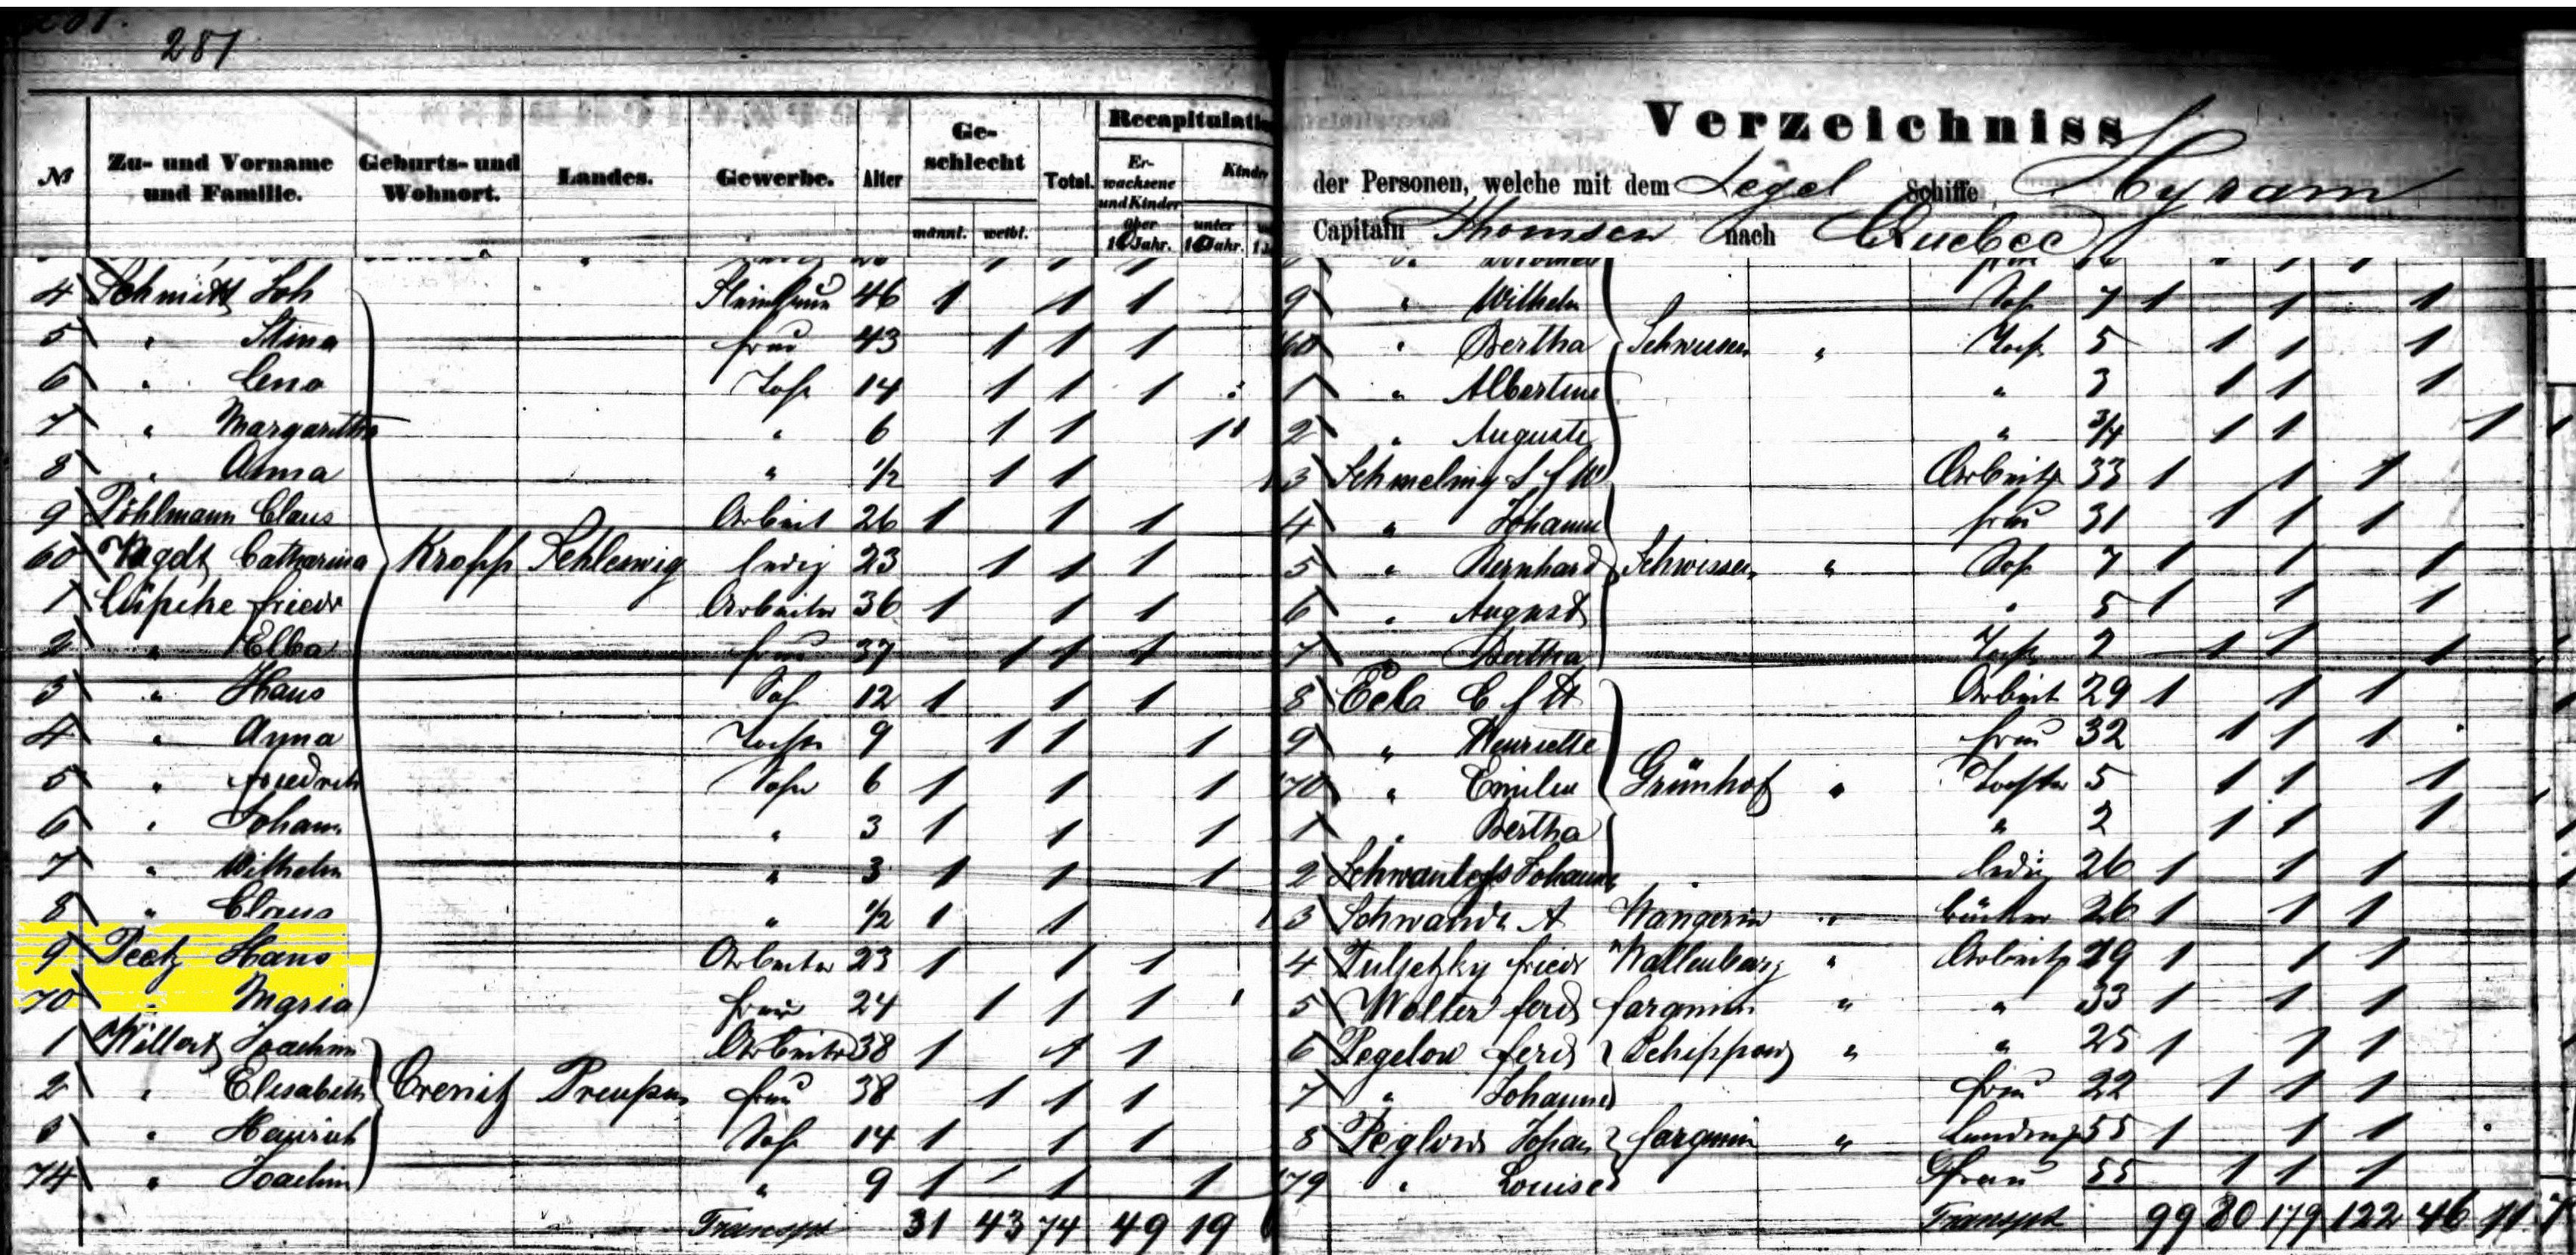 281
№ Zu- und Vorname und Familie. Geburts- und Wohnort. Landes. Gewerbe. Alter Ge-schlecht männl. weibl. Total. Recapitulatio Er-wachsene und Kinder über 10 Jahr. Kinder unter 10 Jahr.
4 Schmitt Joh 46 1 1 1
5 " Stina frau 43 1 1 1
6 " Lena 14 1 1 1
7 " Margaretha " 6 1 1 1
8 " Anna " 1/2 1 1
9 Pöhlmann Claus Arbeit 26 1 1 1
60 Catharina Kropp Schleswig ledig 23 1 1 1
1 Lüpche Friedr Arbeiter 36 1 1 1
2 " Elba frau 37 1 1 1
3 " Hans Soh 12 1 1 1
4 " Anna Tochter 9 1 1 1
5 " Friedrich Sohn 6 1 1 1
6 " Johann " 3 1 1 1
7 " Wilhelm " 3 1 1 1
8 " Claus " 1/2 1 1
9 Peetz Hans Arbeiter 23 1 1 1
70 " Maria frau 24 1 1 1
1 Willert Joachim Arbeiter 38 1 1 1
2 " Elisabeth Crenitz Preußen frau 38 1 1 1
3 " Heinrich Soh 14 1 1 1
74 " Joachim " 9 1 1 1
Transport 31 43 74 49 19
Verzeichniss
der Personen, welche mit dem Segel Schiffe Hyram
Capitain Thomsen nach Quebec
9 " Wilhelm Soh 7 1 1 1
60 " Bertha " Toch 5 1 1 1
1 " Albertine " 3 1 1 1
2 " Auguste " 3/4 1 1 1
3 Schmeling Arbeit 33 1 1 1
4 " Johanne frau 31 1 1 1
5 " Bernhard Schwissen " Soh 7 1 1 1
6 " August " 5 1 1 1
7 " Bertha Toch 2 1 1 1
8 Arbeit 29 1 1 1
9 " Henriette frau 32 1 1 1
70 " Emilie Grünhof " Tochter 5 1 1 1
1 " Bertha " 2 1 1 1
2 Johanne ledig 26 1 1 1
3 Schwandt A Wangerin " 26 1 1 1
4 Friedr Wallenburg " Arbeit 29 1 1 1
5 Wolter Ferd " " 33 1 1 1
6 Pegelow Ferd Schippow " " 25 1 1 1
7 " Johanne frau 22 1 1 1
8 Peglow Johan " 55 1 1 1
79 " Louise frau 55 1 1 1
Transport 99 80 179 122 46 11